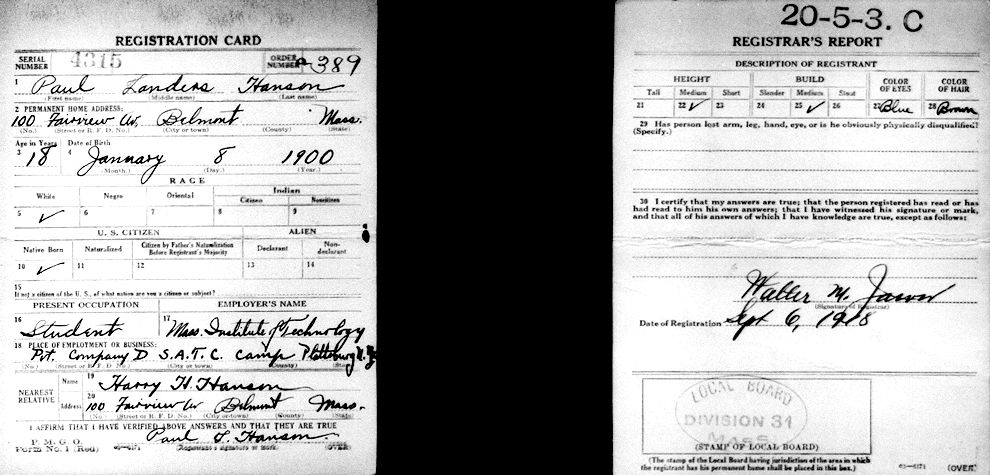 REGISTRATION CARD
SERIAL NUMBER 4315 ORDER NUMBER 389
1 Paul Landers Hanson
(First name) (Middle name) (Last name)
2 PERMANENT HOME ADDRESS:
100 Fairview Av. Belmont Mass.
(No.) (Street or R. F. D. No.) (City or town) (County) (State)
Age in Years Date of Birth
3 18 4 January 8 1900
(Month.) (Day.) (Year.)
RACE
White Negro Oriental Indian
Citizen Noncitizen
5 ✓ 6 7 8 9
U. S. CITIZEN ALIEN
Native Born Naturalized Citizen by Father's Naturalization Before Registrant's Majority Declarant Non-declarant
10 ✓ 11 12 13 14
15
If not a citizen of the U. S., of what nation are you a citizen or subject?
PRESENT OCCUPATION EMPLOYER'S NAME
16 Student 17 Mass. Institute of Technology
18 PLACE OF EMPLOYMENT OR BUSINESS:
Pvt. Company D S.A.T.C. Camp Plattsburg N.Y.
(No.) (Street or R. F. D. No.) (City or town) (County) (State)
NEAREST RELATIVE Name 19 Harry H. Hanson
Address 20 100 Fairview Av Belmont Mass.
(No.) (Street or R. F. D. No.) (City or town) (County) (State)
I AFFIRM THAT I HAVE VERIFIED ABOVE ANSWERS AND THAT THEY ARE TRUE
P. M. G. O. Paul L. Hanson
Form No. 1 (Red) 03—6171 (Registrant's signature or mark) (OVER)
20-5-3. C
REGISTRAR'S REPORT
DESCRIPTION OF REGISTRANT
HEIGHT BUILD COLOR OF EYES COLOR OF HAIR
Tall Medium Short Slender Medium Stout
21 22 ✓ 23 24 25 ✓ 26 27 Blue 28 Brown
29 Has person lost arm, leg, hand, eye, or is he obviously physically disqualified?
(Specify.)
30 I certify that my answers are true; that the person registered has read or has
had read to him his own answers; that I have witnessed his signature or mark,
and that all of his answers of which I have knowledge are true, except as follows:
Walter M.
(Signature of Registrar)
Date of Registration Sept 6, 1918
LOCAL BOARD
DIVISION 31
MASS
(STAMP OF LOCAL BOARD)
(The stamp of the Local Board having jurisdiction of the area in which
the registrant has his permanent home shall be placed in this box.)
03—6171 (OVER)